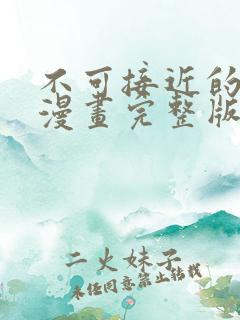 不可接近的
漫畫完整版
二火妹子
未经同意禁止转载